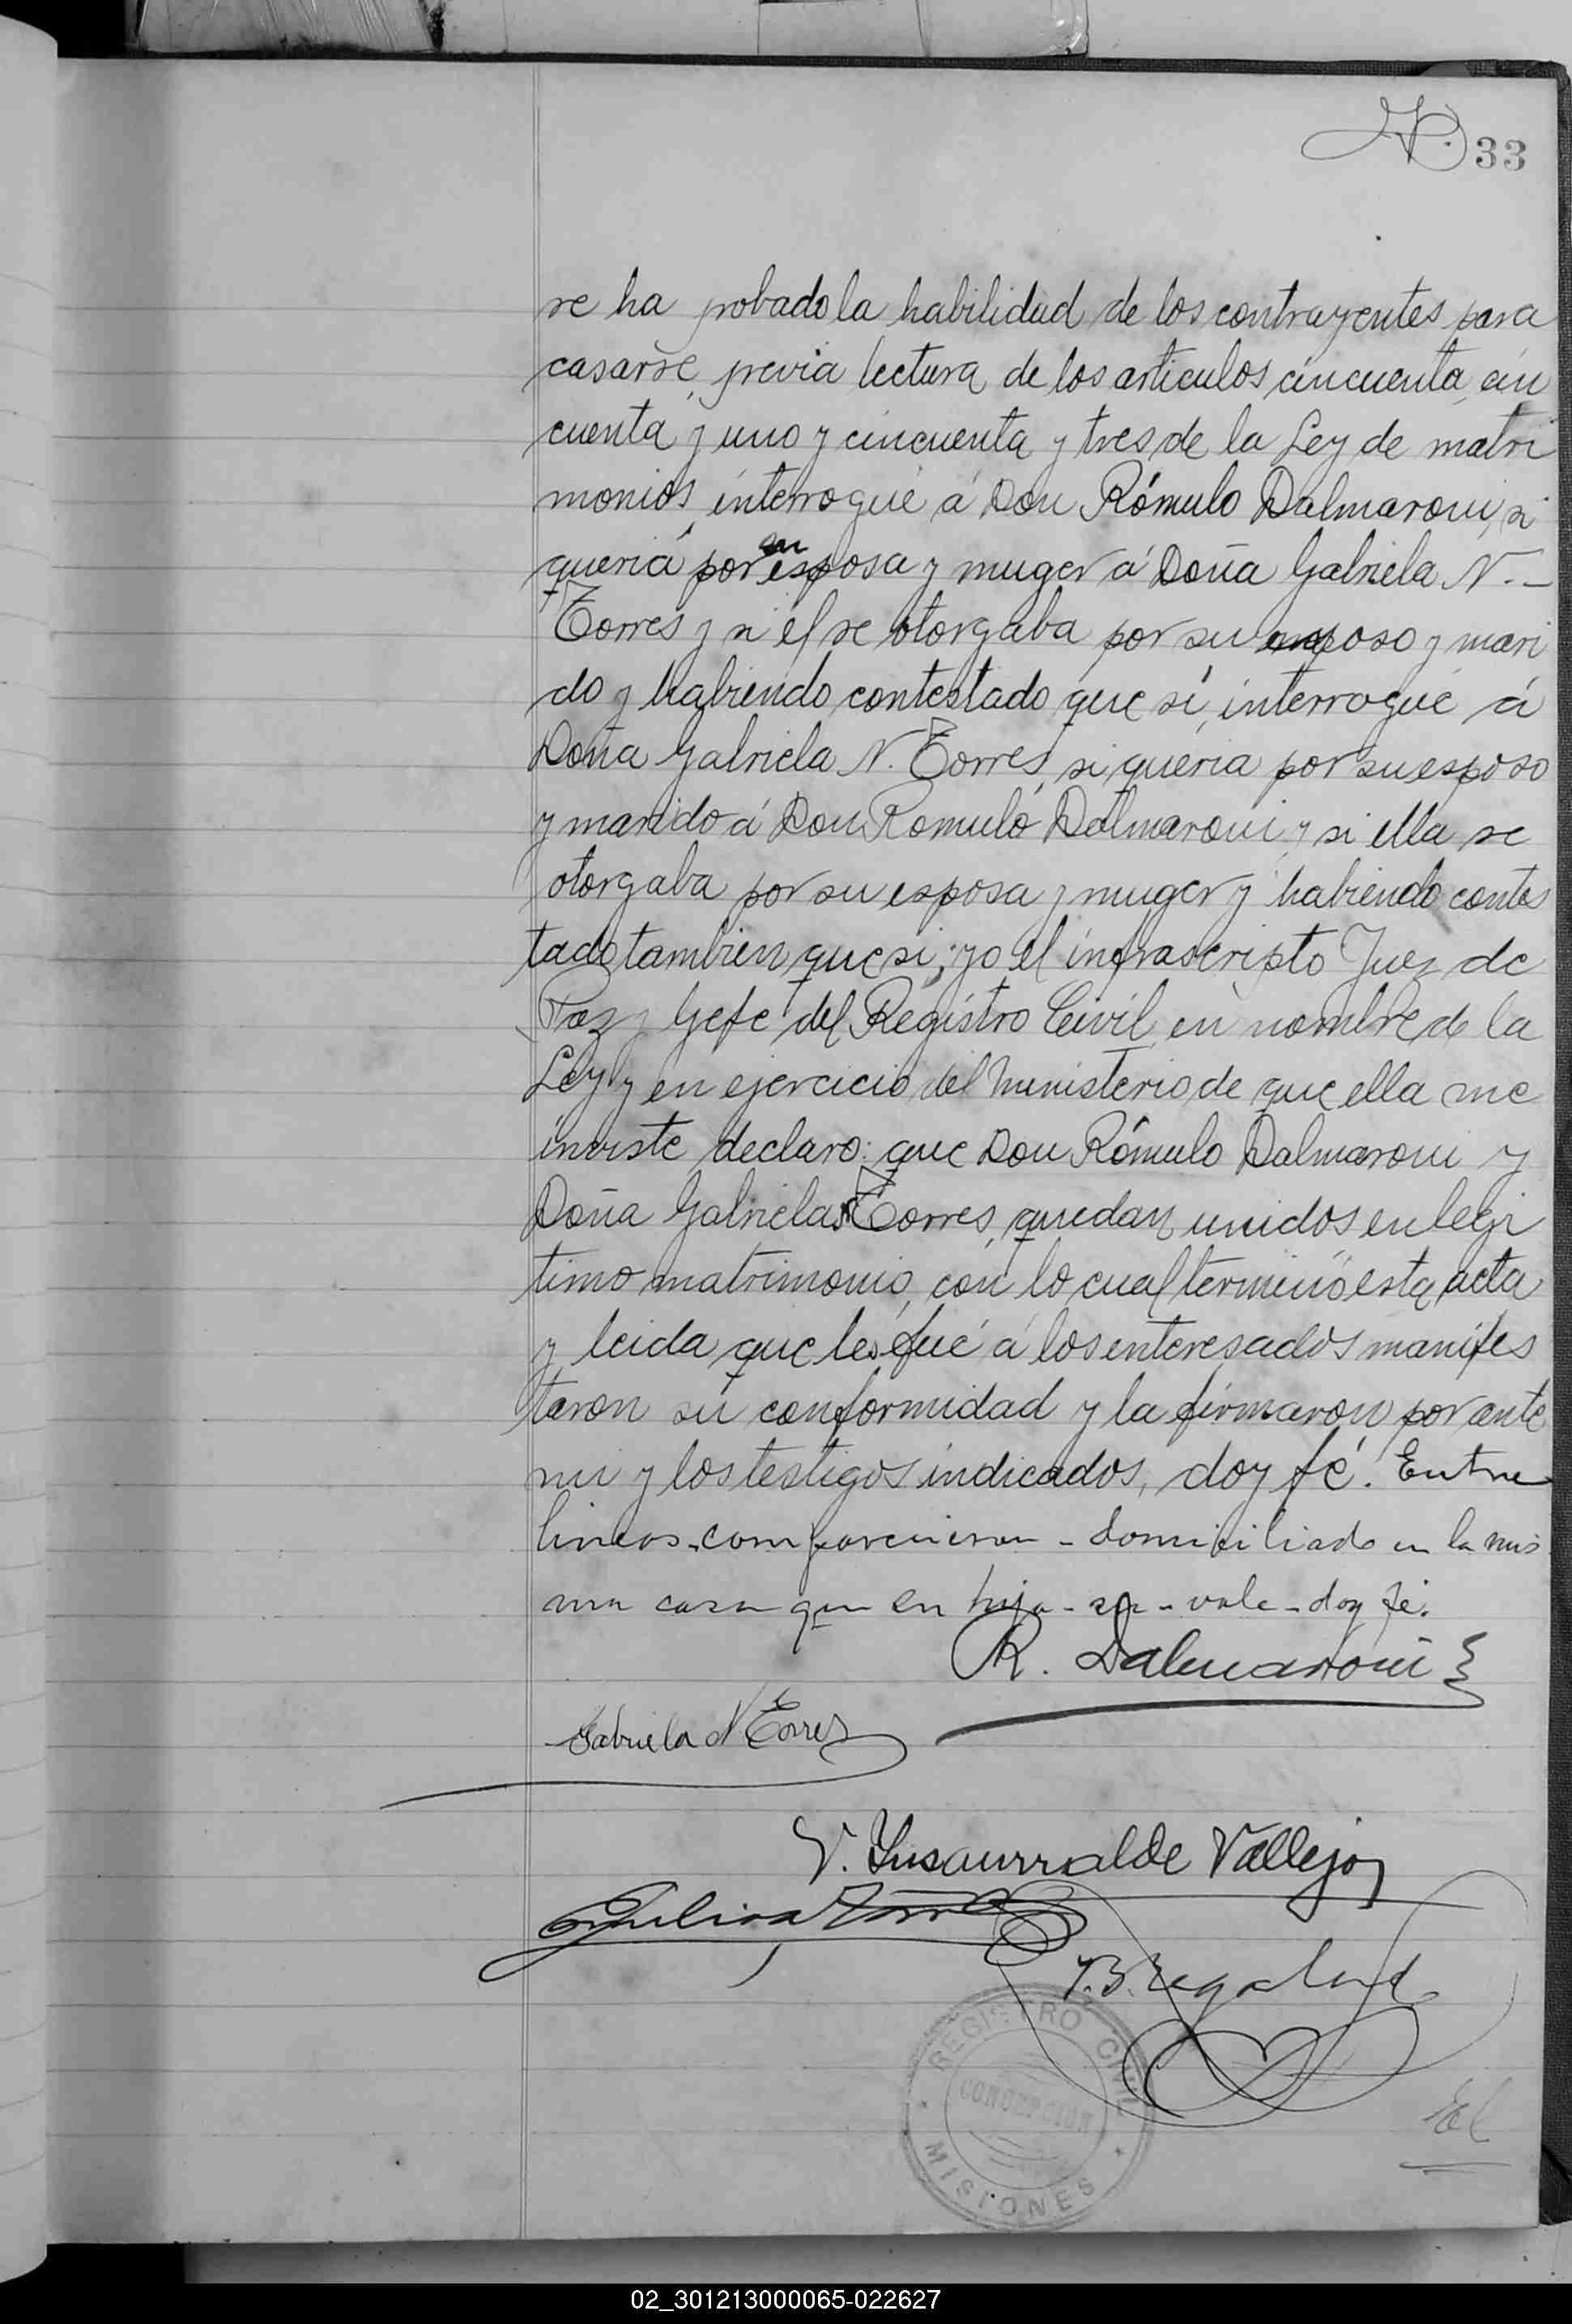 33
se ha probado la habilidad de los contrayentes para
casarse, previa lectura de los articulos cincuenta, cin
cuenta y uno y cincuenta y tres de la Ley de matri
monios, interrogué á Don Rómulo Dalmaroni, si
queria por su esposa y muger á Doña Gabriela N. -
Torres y si él se otorgaba por su esposo y mari
do y habiendo contestado que sí, interrogué á
Doña Gabriela N. Torres, si queria por su esposo
y marido á Don Romulo Dalmaroni y si ella se
otorgaba por su esposa y muger y habiendo contes
tado tambien que si; yo el infrascripto Juez de
Paz y Gefe del Registro Civil, en nombre de la
Ley y en ejercicio del ministerio de que ella me
inviste declaro: que Don Rómulo Dalmaroni y
Doña Gabriela N. Torres, quedan unidos en legi
timo matrimonio, con lo cual terminó esta acta
y leida que les fué á los interesados manifes
taron su conformidad y la firmaron por ante
mi y los testigos indicados, doy fé. Entre
lineas - comparecieron - domiciliado en la mis
ma casa que su hija - su - vale - doy fé.
R. Dalmaroni
Gabriela N Torres
V. Ynsaurralde Vallejos
Torres
REGISTRO CIVIL
CONCEPCION
MISIONES
El
02_301213000065-022627